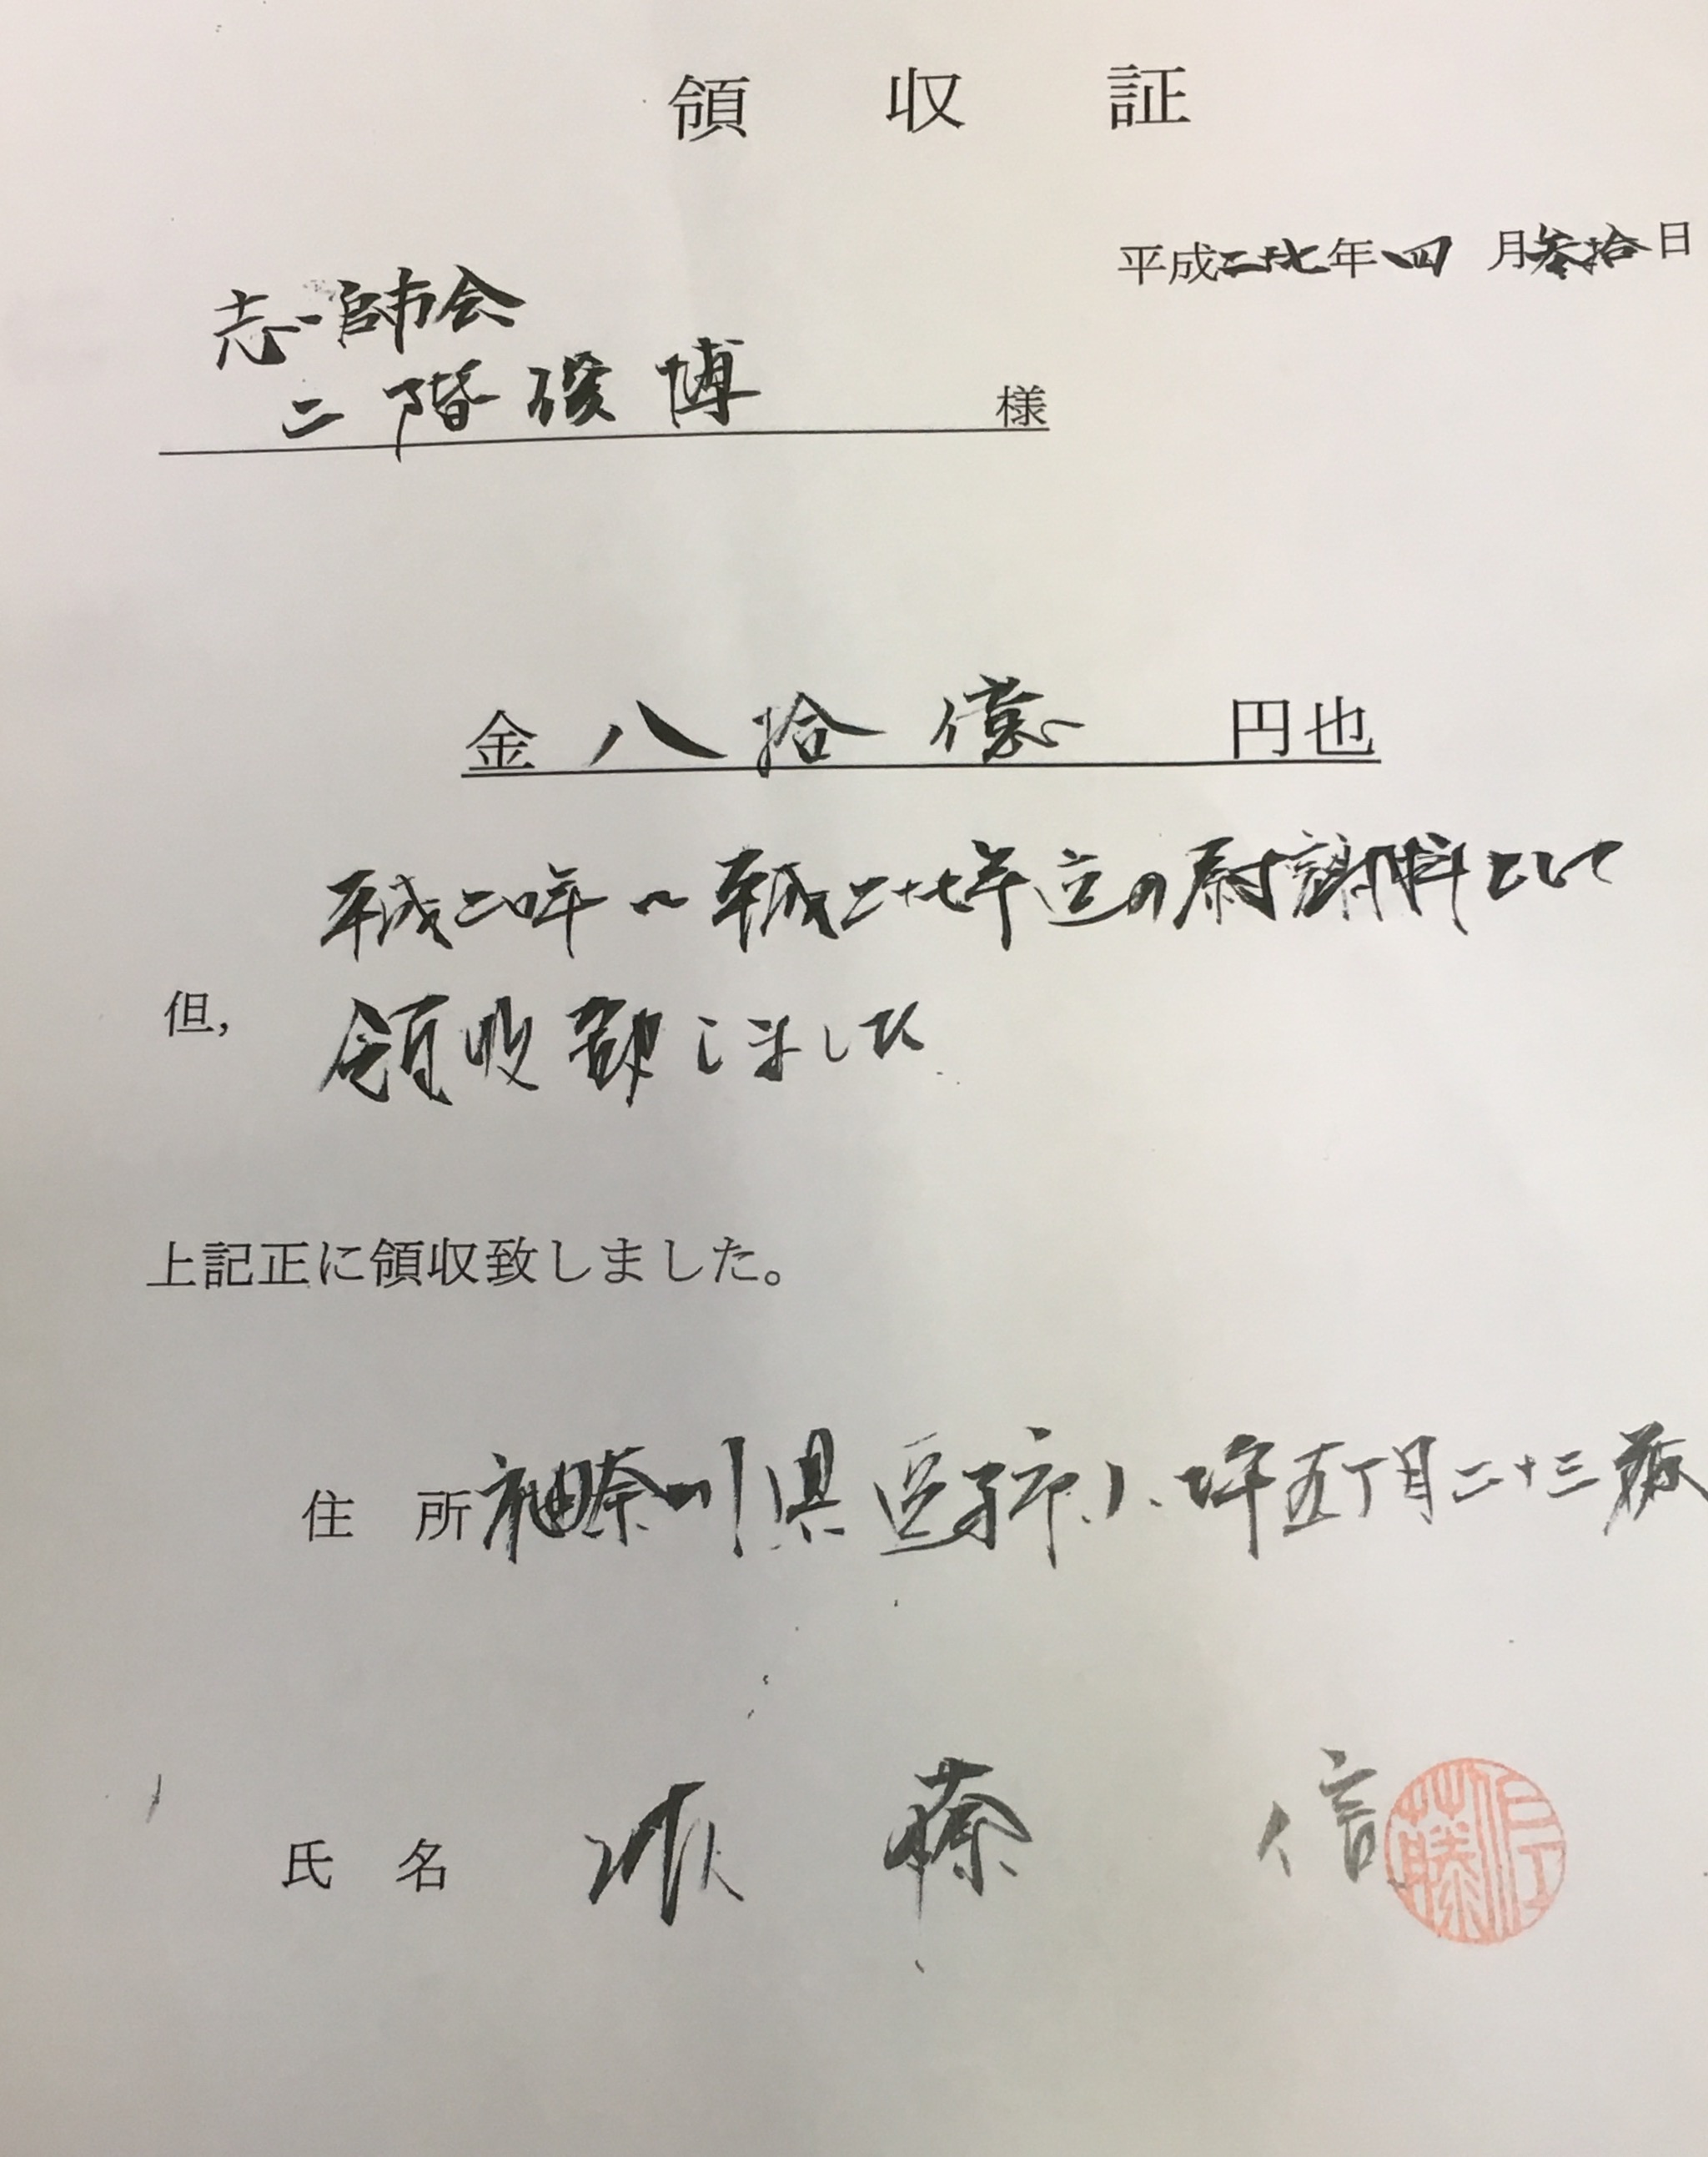 領収証
平成二十七年四月参拾日
志師会
二階俊博 様
金八拾億円也
平成二十年〜平成二十七年迄の慰謝料として
但, 領収致しました
上記正に領収致しました。
住所 神奈川県逗子市小坪五丁目二十三
氏名 藤信